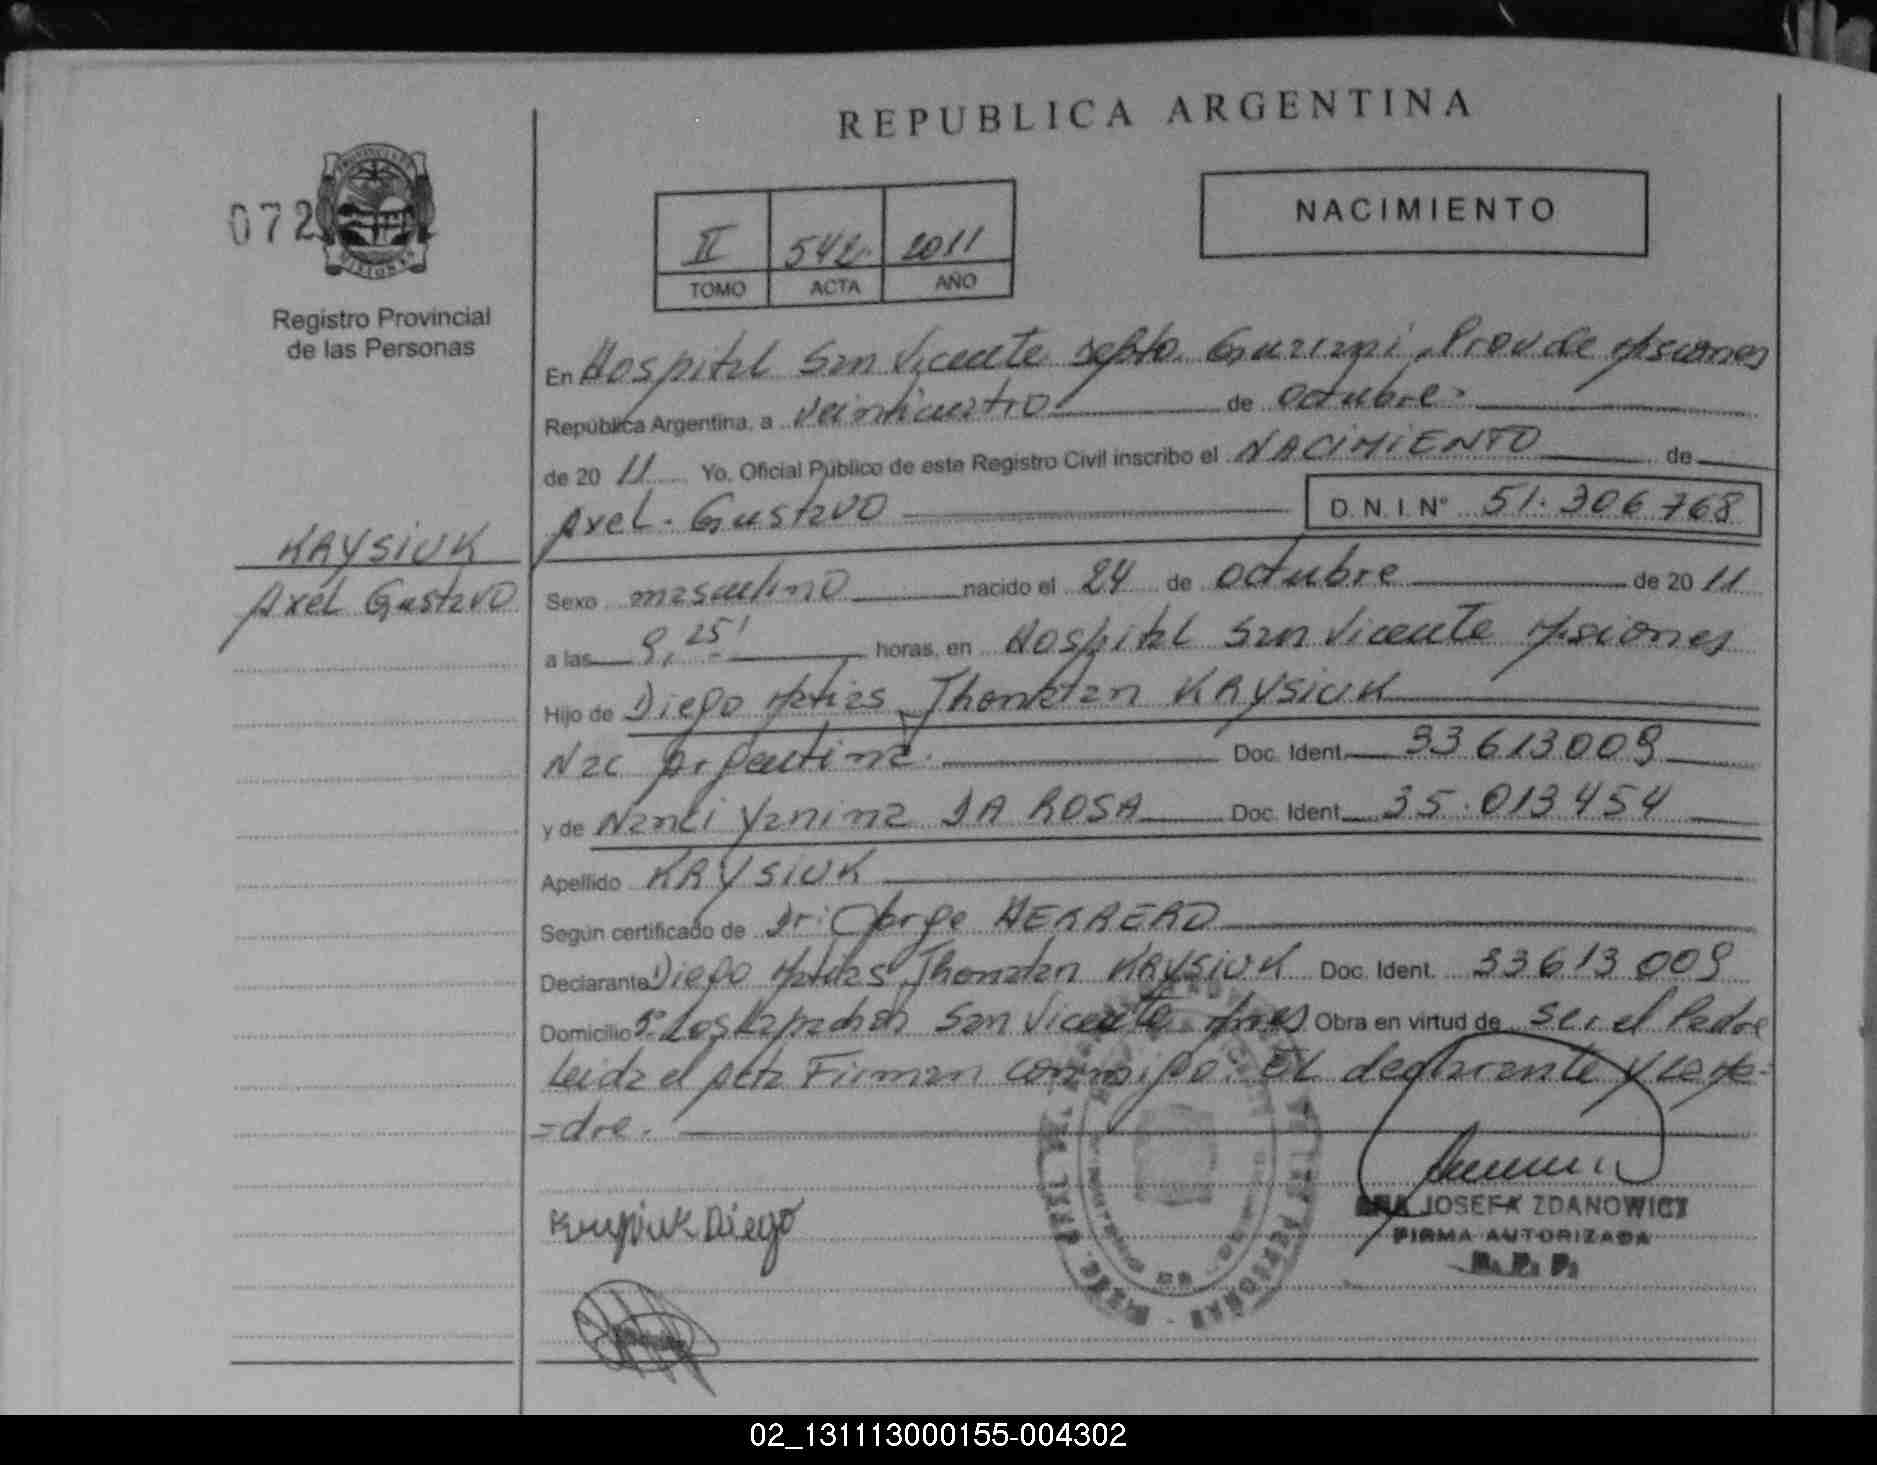 REPUBLICA ARGENTINA
072
PROVINCIA DE
MISIONES
Registro Provincial
de las Personas
II 542 2011
TOMO ACTA AÑO
NACIMIENTO
En Hospital San Vicente Depto. Guarani, Prov de Misiones
República Argentina, a veinticuatro de octubre
de 20 11 Yo, Oficial Público de este Registro Civil inscribo el NACIMIENTO de
Axel Gustavo D.N.I.N° 51.306.768
KRYSIUK
Axel Gustavo
Sexo masculino nacido el 24 de octubre de 20 11
a las 9,25' horas, en Hospital San Vicente Misiones
Hijo de Diego Matias Jhonatan KRYSIUK
Nac Argentina. Doc. Ident. 33613009
y de Nanci Yanina DA ROSA Doc. Ident. 35.013454
Apellido KRYSIUK
Según certificado de Dr: Jorge HERRERO
Declarante Diego Matias Jhonatan KRYSIUK Doc. Ident. 33613009
Domicilio San Vicente Mnes Obra en virtud de ser el Padre
Leida el Acta Firman conmigo. El declarante y la Ma-
=dre.
Krysiuk Diego
JOSEFA ZDANOWICZ
FIRMA AUTORIZADA
02_131113000155-004302